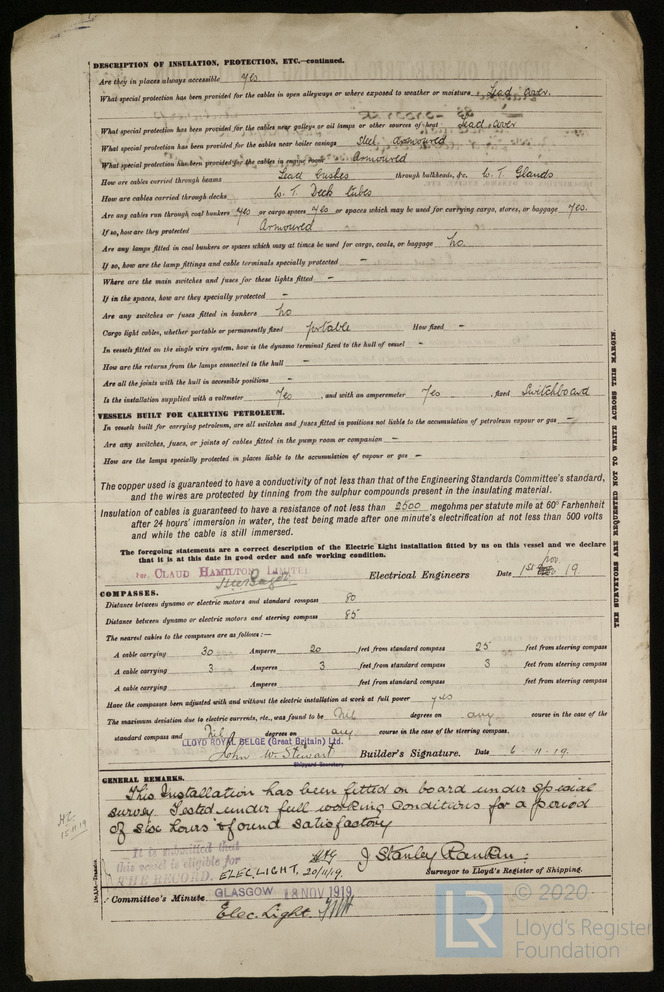 DESCRIPTION OF INSULATION, PROTECTION, ETC.—continued.
Are they in places always accessible yes
What special protection has been provided for the cables in open alleyways or where exposed to weather or moisture Lead Cover.
What special protection has been provided for the cables near galleys or oil lamps or other sources of heat Lead Cover
What special protection has been provided for the cables near boiler casings Steel Armoured
What special protection has been provided for the cables in engine room Armoured
How are cables carried through beams Lead Bushes through bulkheads, &c. W. T. Glands
How are cables carried through decks W. T. Deck tubes
Are any cables run through coal bunkers yes or cargo spaces yes or spaces which may be used for carrying cargo, stores, or baggage yes.
If so, how are they protected Armoured
Are any lamps fitted in coal bunkers or spaces which may at times be used for cargo, coals, or baggage no.
If so, how are the lamp fittings and cable terminals specially protected —
Where are the main switches and fuses for these lights fitted —
If in the spaces, how are they specially protected —
Are any switches or fuses fitted in bunkers no
Cargo light cables, whether portable or permanently fixed portable How fixed —
In vessels fitted on the single wire system, how is the dynamo terminal fixed to the hull of vessel —
How are the returns from the lamps connected to the hull —
Are all the joints with the hull in accessible positions —
Is the installation supplied with a voltmeter Yes , and with an amperemeter Yes , fixed Switchboard
VESSELS BUILT FOR CARRYING PETROLEUM.
In vessels built for carrying petroleum, are all switches and fuses fitted in positions not liable to the accumulation of petroleum vapour or gas —
Are any switches, fuses, or joints of cables fitted in the pump room or companion —
How are the lamps specially protected in places liable to the accumulation of vapour or gas —
The copper used is guaranteed to have a conductivity of not less than that of the Engineering Standards Committee's standard,
and the wires are protected by tinning from the sulphur compounds present in the insulating material.
Insulation of cables is guaranteed to have a resistance of not less than 2500 megohms per statute mile at 60° Farhenheit
after 24 hours' immersion in water, the test being made after one minute's electrification at not less than 500 volts
and while the cable is still immersed.
The foregoing statements are a correct description of the Electric Light installation fitted by us on this vessel and we declare
that it is at this date in good order and safe working condition.
For CLAUD HAMILTON LIMITED
Electrical Engineers Date 1st Nov. 19.
COMPASSES.
Distance between dynamo or electric motors and standard compass 80
Distance between dynamo or electric motors and steering compass 85
The nearest cables to the compasses are as follows:—
A cable carrying 30 Amperes 20 feet from standard compass 25 feet from steering compass
A cable carrying 3 Amperes 3 feet from standard compass 3 feet from steering compass
A cable carrying Amperes feet from standard compass feet from steering compass
Have the compasses been adjusted with and without the electric installation at work at full power yes
The maximum deviation due to electric currents, etc., was found to be Nil degrees on any course in the case of the
standard compass and Nil degrees on any course in the case of the steering compass.
LLOYD ROYAL BELGE (Great Britain) Ltd.
John W. Stewart Builder's Signature. Date 6.11.19.
Shipyard Secretary
GENERAL REMARKS.
This Installation has been fitted on board under special
survey. Tested under full working conditions for a period
of six hours & found satisfactory
15.11.19
It is submitted that
this vessel is eligible for
THE RECORD. ELEC LIGHT. 20/11/19.
J Stanley Rankin.
Surveyor to Lloyd's Register of Shipping.
Committee's Minute GLASGOW 18 NOV 1919
Elec. Light
THE SURVEYORS ARE REQUESTED NOT TO WRITE ACROSS THIS MARGIN.
LR
© 2020
Lloyd's Register
Foundation